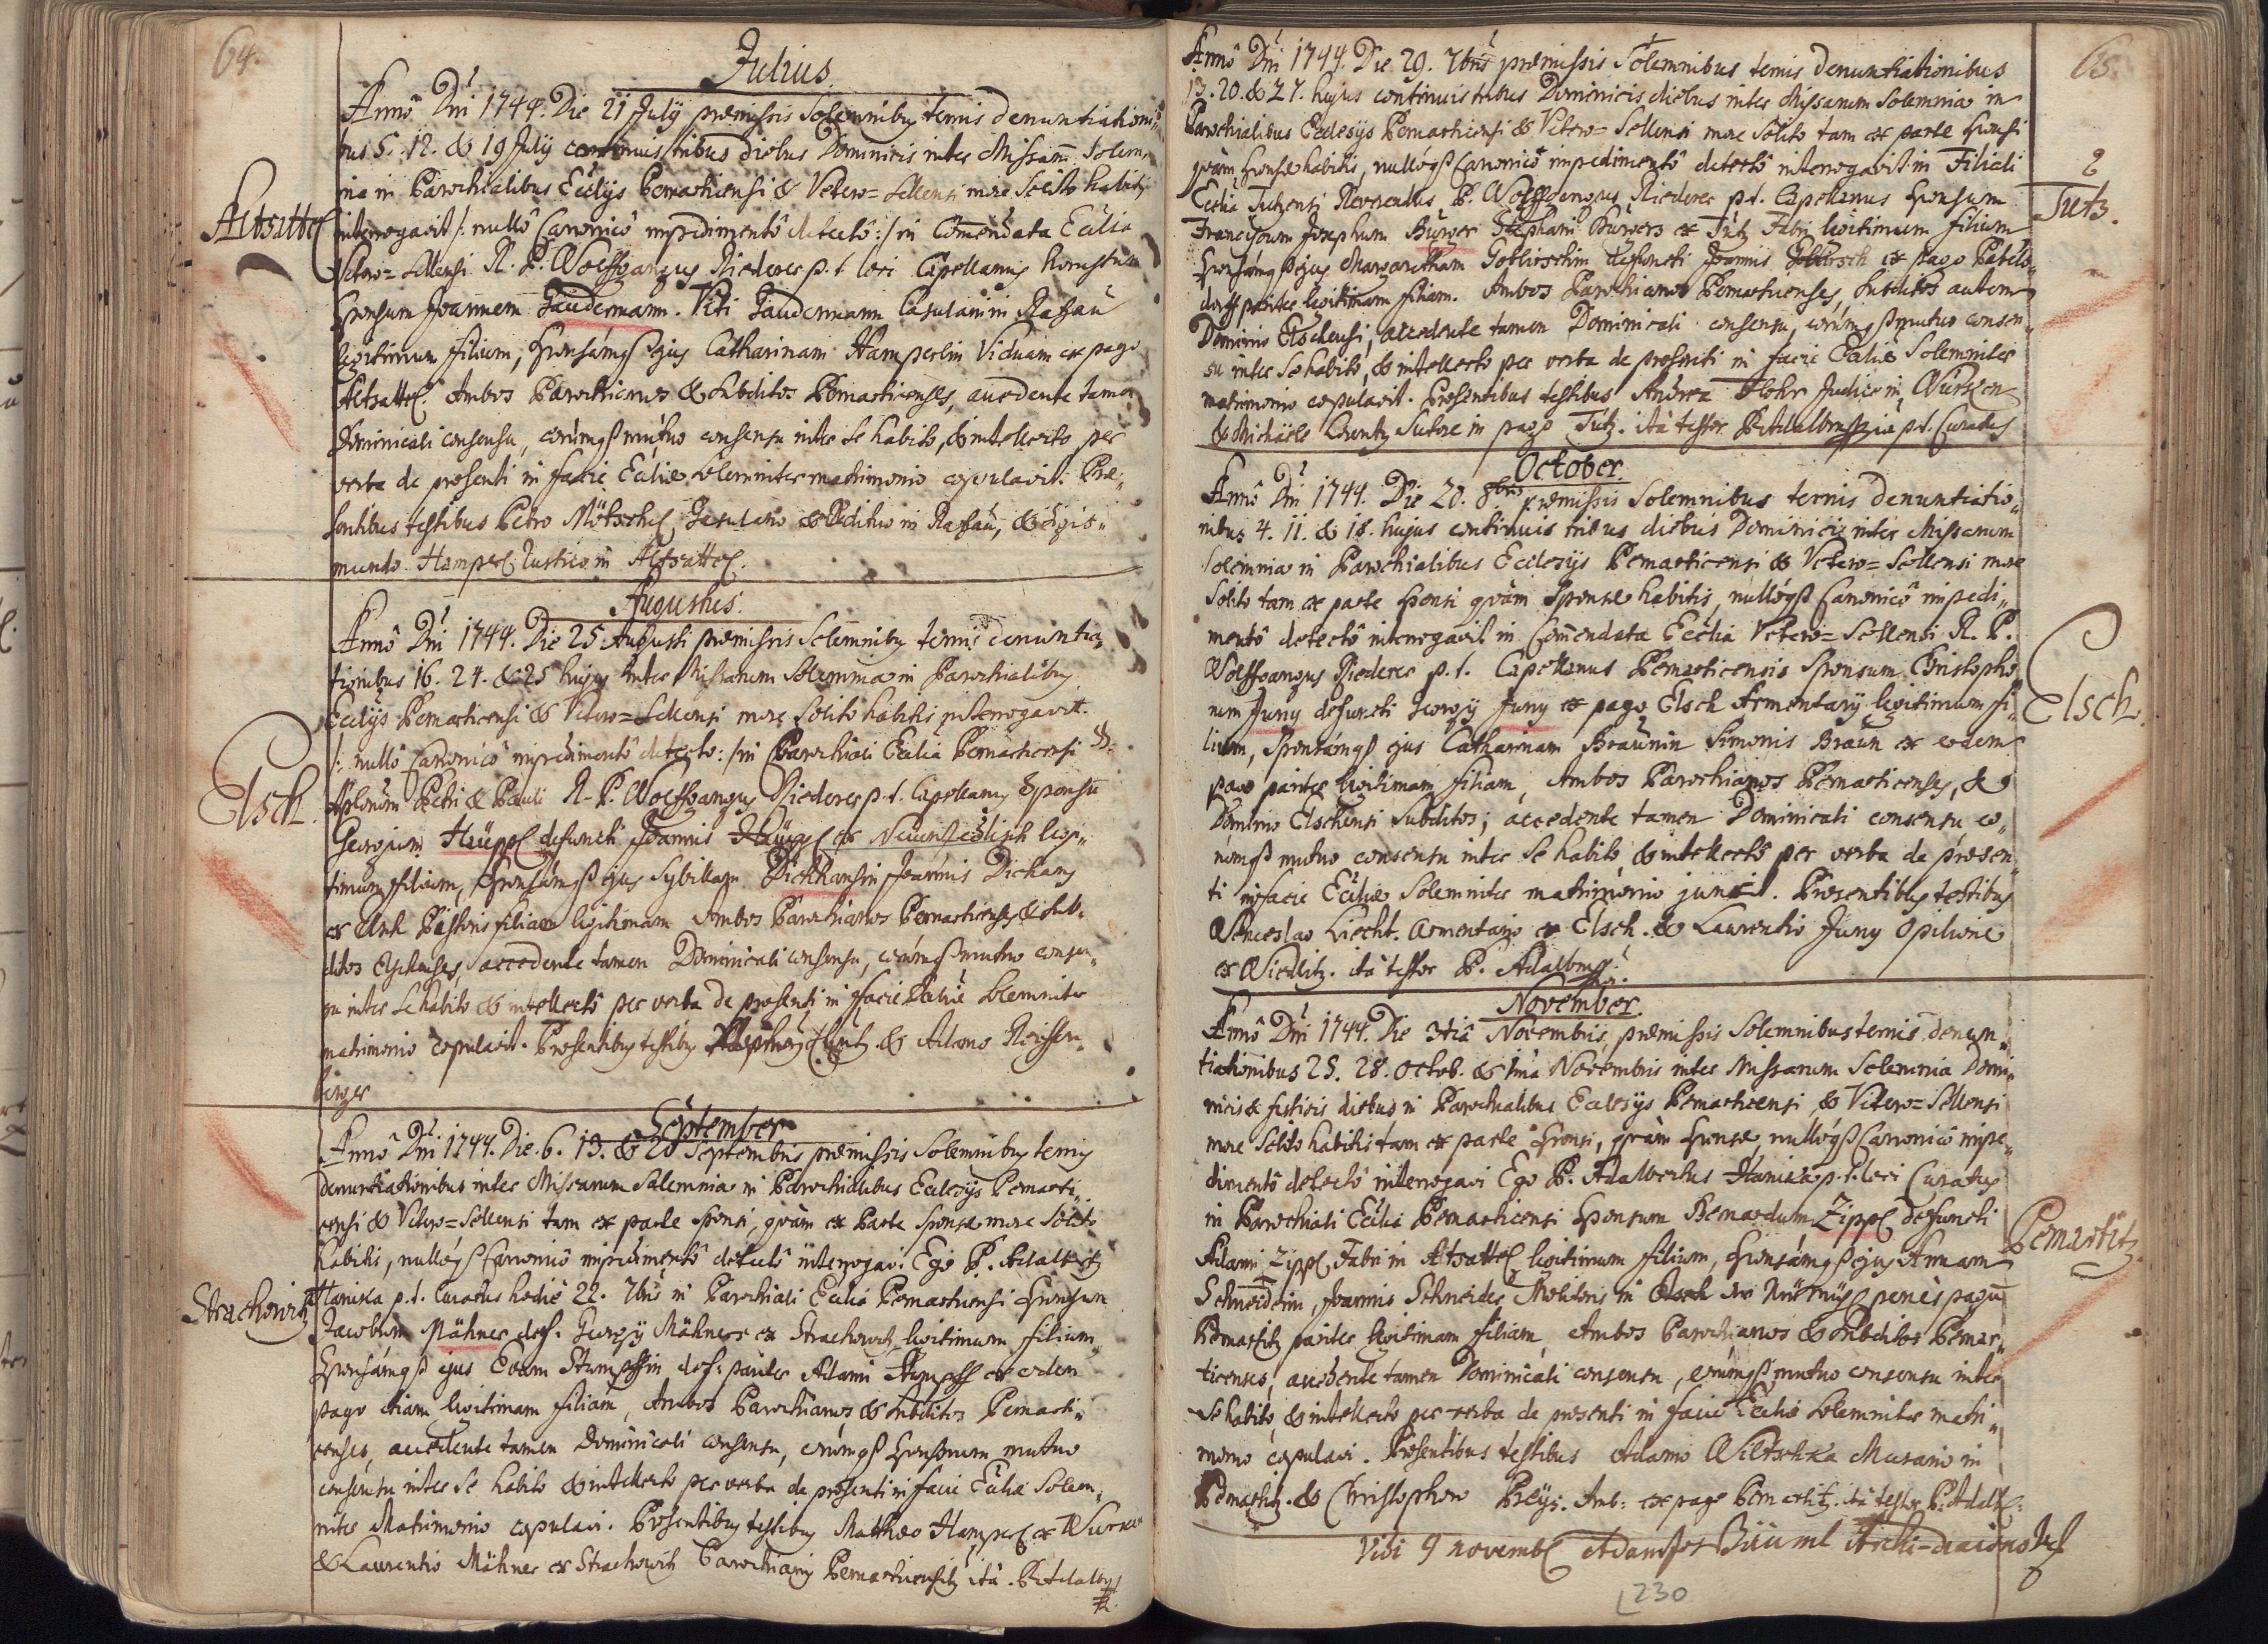 64.
Julius.
Annô Dni 1744. Die 21 July præmissis Solemnibus ternis denuntiationi-
bus 5. 12. & 19 July continuis tribus diebus Dominicis inter Missarum Solem-
nia in Parochialibus Eccliis Pernarticensi & Vetero=Sellensi more Solito habitis
Altsattel
interrogavit /: nullô Canonicô impedimentô detectô :/ in Commendata Ecclia
Vetero=Sellensi R. P. Wolffgangus Riederer p. t. loci Capellanus honestum
Sponsum Joannem Gaudermann. Viti Gaudermann Casularii in Ratzau
legitimum filium, Sponsámqß ejus Catharinam Hamperlin Viduam ex pago
Altsattel. Ambos Parochianos & Subditos Pernarticenses, accedente tamen
Dominicali consensu, eorúmqß mutuo consensu inter Se habito, & intellecto per
verba de præsenti in facie Eccliæ Solemniter matrimonio copulavit. Præ-
sentibus testibus Petro Mötschel, Casulario & Ædituo in Ratzau, & Sigis-
mundo Hamperl Rustico in Altsattel.
Augustus.
Annô Dni 1744. Die 25 Augusti præmissis Solemnibus ternis denuntia-
tionibus 16. 24. & 25 hujus inter Missarum Solemnia in Parochialibus
Eccliis Pernarticensi & Vetero=Sellensi more Solito habitis interrogavit.
/: nullô Canonicô impedimentô detectô :/ in Parochiali Ecclia Pernarticensi SS.
Elsch.
Aplorum Petri & Pauli R. P. Wolffgangus Riederer p. t. Capellanus Sponsum
Georgium Haüppl defuncti Joannis Haüppl ex legi-
timum filium, Sponsámqß ejus Sybillam Dickhansin Joannis Dickans
ex Pistoris filiam legitimam Ambos Parochianos Pernarticenses & Sub-
ditos Elschenses, accedente tamen Dominicali consensu, eorúmqß mutuo consen-
su inter Se habito & intellectô per verba de præsenti in facie Eccliæ Solemniter
matrimonio copulavit. Præsentibus testibus & Adamo Reissen-
binger
September
Annô Dni 1744. Die 6. 13. & 20 Septembris præmissis Solemnibus ternis
denuntiationibus inter Missarum Solemnia in Parochialibus Ecclesijs Pernarti-
censi & Vetero=Sellensi tam ex parte Sponsi, quàm ex Parte Sponsæ more Solito
habitis, nullóqß Canonicô impedimentô detectô interrogavi Ego P. Adalbertus
Strachowitz
Haniska p. t. Curatus hodie 22. 7bris in Parochiali Ecclia Pernarticensi Sponsum
Jacobum Mähner def. Georgy Mähners ex Strachowitz, legitimum filium,
Sponsámqß ejus Evam Stumpffin def: pariter Adami Stumpff ex eodem
pago etiam legitimam filiam, Ambos Parochianos & Subditos Pernarti-
censes, accedente tamen Dominicali consensu, eorúmqß Sponsorum mutuo
consensu inter Se habito & intellecto per verba de præsenti in facie Eccliæ Solem-
niter Matrimonio copulavi. Præsentibus testibus Matthæo Hamperl ex Wurken
& Laurentio Mähner ex Strachowitz Parochianis Pernarticensibus ità. P. Adalbertus
65.
Annô Dni 1744. Die 29. 7bris præmissis Solemnibus ternis denuntiationibus
13. 20. & 27. hujus continuis tribus Dominicis diebus inter Missarum Solemnia in
Parochialibus Ecclesijs Pernarticensi & Vetero=Sellensi more Solito tam ex parte Sponsi
quàm Sponsæ habitis, nullóqß Canonicô impedimentô detectô interrogavit in Filiali
2
Tutz.
Ecclia Tutzensi Reverendus P. Wolffgangus Riederer p. t. Capellanus Sponsum
Franciscum Josephum Bürger Stephani Bürgers ex Tutz Fabri legitimum filium
Sponsámqß ejus Margaretham Goblirschin defuncti Joannis Goblirsch ex pago
dorff pariter legitimam filiam. Ambos Parochianos Pernarticenses, Subditos autem
Dominio Elschensi, accedente tamen Dominicali consensu, eorúmqß mutuo consen-
su inter Se habito, & intellecto per verba de præsenti in facie Eccliæ Solemniter
matrimonio copulavit. Præsentibus testibus Andrea Flohr Judice in Wurken
& Michäele Lorentz Sutore in pago Tutz. ità testor P. Adalbertus p. t. Curatus
October.
Annô Dni 1744. Die 20. 8bris præmissis Solemnibus ternis denuntiatio-
nibus 4. 11. & 18. hujus continuis tribus diebus Dominicis inter Missarum
Solemnia in Parochialibus Ecclesijs Pernarticensi & Vetero=Sellensi more
Solito tam ex parte Sponsi quàm Sponsæ habitis, nullóqß Canonicô impedi-
mentô detectô interrogavit in Commendata Ecclia Vetero=Sellensi R. P.
Wolffgangus Riederer p. t. Capellanus Pernarticensis Sponsum Christopho-
Elsch.
rum Juny defuncti Georgij Juny ex pago Elsch Armentarij legitimum fi-
lium, Sponsámqß ejus Catharinam Braünin Simonis Braün ex eodem
pago pariter legitimam filiam, Ambos Parochianos Pernarticenses, &
Dominio Elschensi Subditos; accedente tamen Dominicali consensu, eo-
rúmqß mutuo consensu inter Se habito & intellectô per verba de præsen-
ti in facie Eccliæ Solemniter matrimonio junxit. Præsentibus testibus
Wenceslao Liecht. Armentario ex Elsch. & Laurentio Juny Opilione
ex Wiedlitz. ità testor P. Adalbertus
November.
Annô Dni 1744. Die 3tiâ Novembris, præmissis Solemnibus ternis denun-
tiationibus 25. 28. Octob. & 1mâ Novembris inter Missarum Solemnia Domi-
nicis & festivis diebus in Parochialibus Ecclesijs Pernarticensi & Vetero=Sellensi
more Solito habitis tam ex parte Sponsi, quàm Sponsæ, nullóqß Canonicô impe-
dimentô detectô interrogavi Ego P. Adalbertus Haniska p. t. loci Curatus
Pernartitz.
in Parochiali Ecclia Pernarticensi Sponsum Bernardum Zippl defuncti
Adami Zippl Fabri in Altsattel legitimum filium, Sponsámqß ejus Annam
Schneiderin, Joannis Schneider Molitoris in penès pagum
Pernartitz pariter legitimam filiam, Ambos Parochianos & Subditos Pernar-
ticenses, accedente tamen Dominicali consensu, eorúmqß mutuo consensu inter
Se habito, & intellecto per verba de præsenti in facie Eccliæ Solemniter matri-
monio copulavi. Præsentibus testibus Adamo Wiltschka Murario in
Pernartitz. & Christophoro Preÿs. Amb: ex pago Pernartitz. ità testor P. Adalb:
Vidi 9 novemb Adam Bäuml Archi-diaconus
230